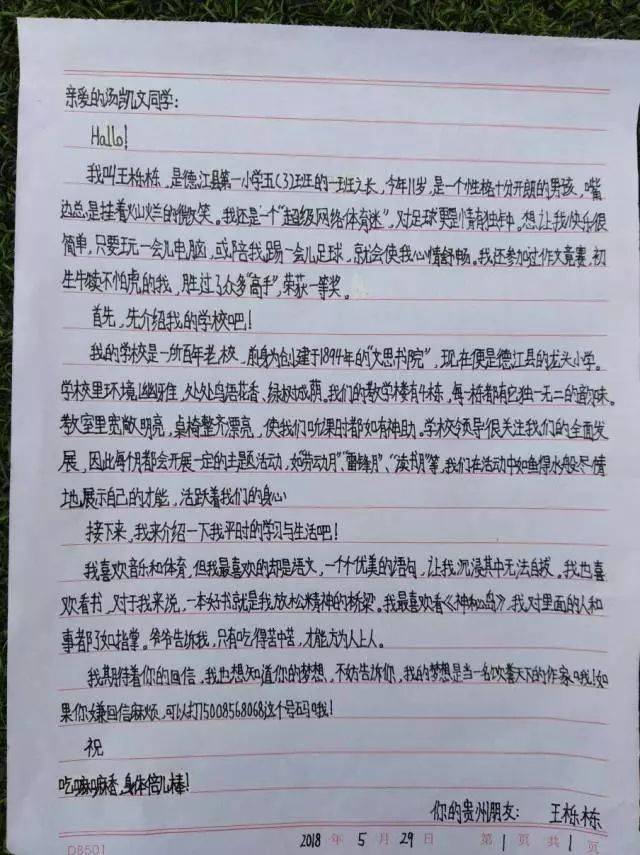 亲爱的汤凯文同学：
Hallo!
我叫王栎栋，是德江县第一小学五(3)班的一班之长，今年11岁，是一个性格十分开朗的男孩，嘴
边总是挂着灿烂的微笑。我还是一个“超级网络体育迷”，对足球更是情有独钟。想让我快乐很
简单，只要玩一会儿电脑，或陪我踢一会儿足球，就会使我心情舒畅。我还参加过作文竞赛，初
生牛犊不怕虎的我，胜过了众多“高手”，荣获一等奖。
首先，先介绍我的学校吧！
我的学校是一所百年老校，前身为创建于1894年的“文思书院”，现在便是德江县的龙头小学。
学校里环境幽雅，处处鸟语花香、绿树成荫。我们的教学楼有4栋，每一栋都有它独一无二的韵味。
教室里宽敞明亮，桌椅整齐漂亮，使我们听课时都如有神助。学校领导很关注我们的全面发
展，因此每个月都会开展一定的主题活动，如“劳动月”“雷锋月”、“读书月”等，我们在活动中如鱼得水般尽情
地展示自己的才能，活跃着我们的身心
接下来，我来介绍一下我平时的学习与生活吧！
我喜欢音乐和体育，但我最喜欢的却是语文，一个个优美的语句，让我沉浸其中无法自拔。我也喜
欢看书，对于我来说，一本好书就是我放松精神的桥梁。我最喜欢看《神秘岛》，我对里面的人和
事都了如指掌。爷爷告诉我，只有吃得苦中苦，才能方为人上人。
我期待着你的回信，我也想知道你的梦想，不妨告诉你，我的梦想是当一名饮誉天下的作家哦！如
果你嫌回信麻烦，可以打5008568068这个号码哦！
祝
吃嘛嘛香，身体倍儿棒！
你的贵州朋友： 王栎栋
DB501 2018 年 5 月 29 日 第 1 页 共 1 页